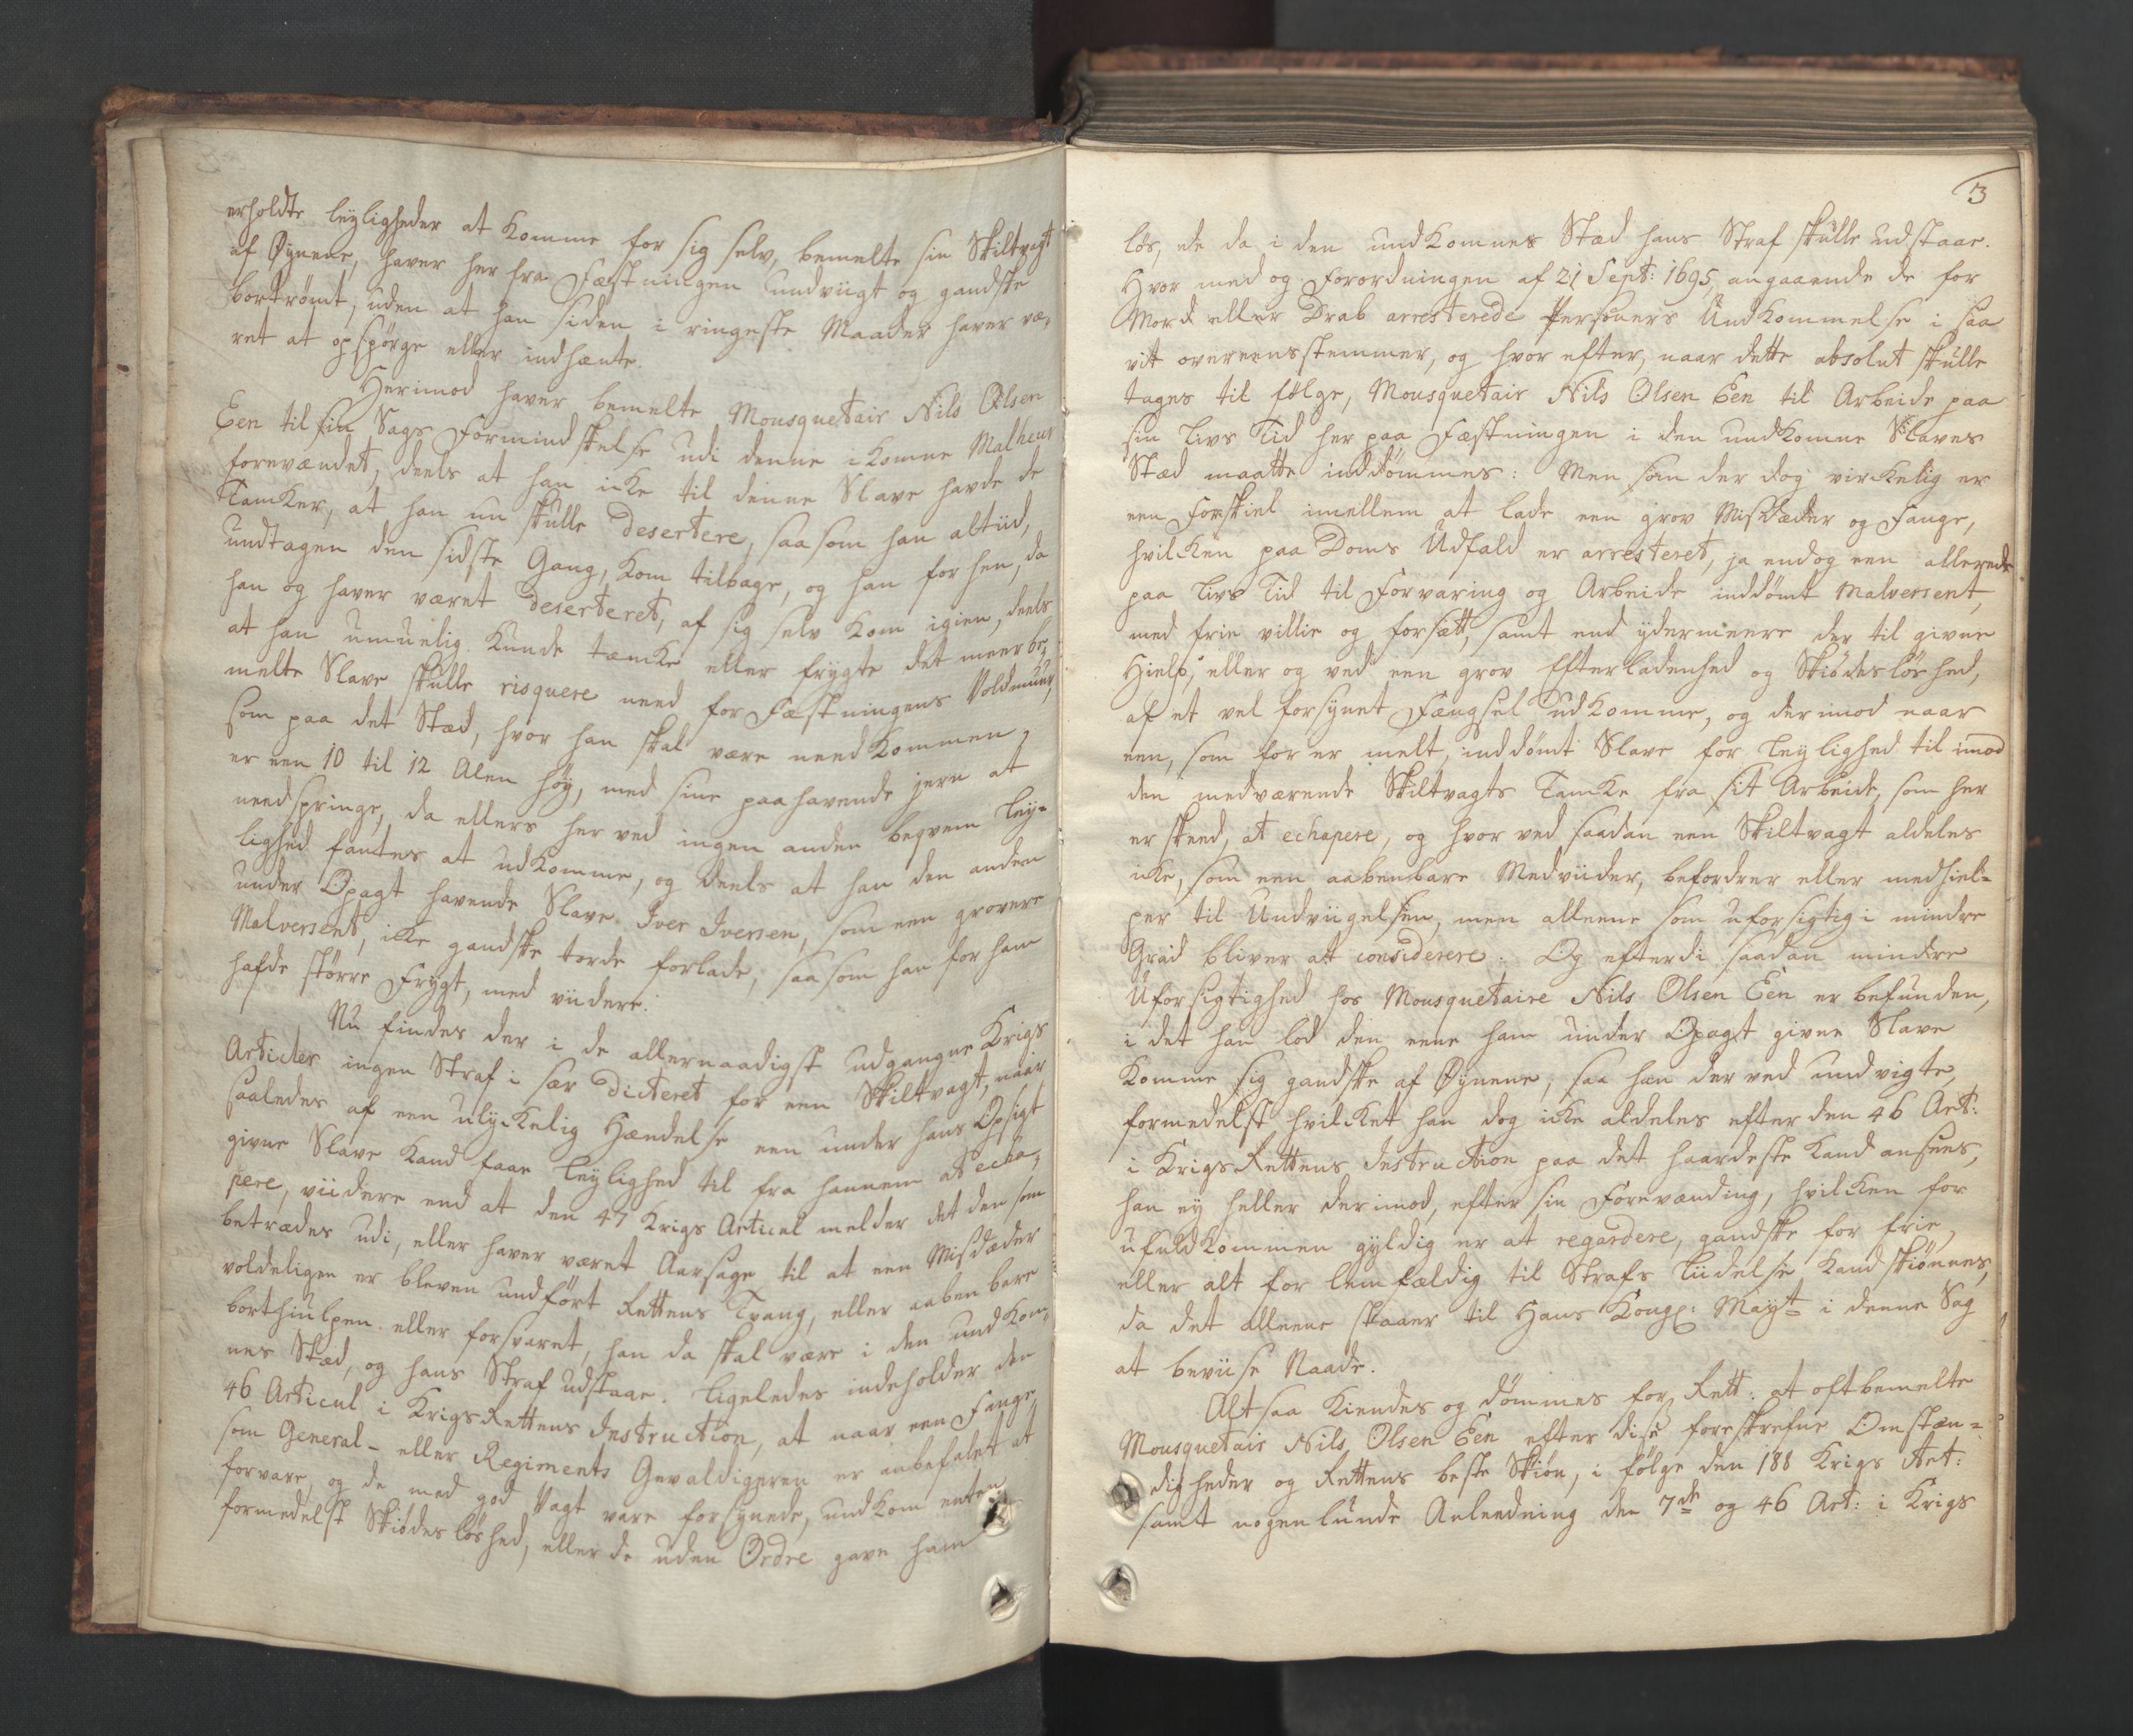 erholdte leyligheder at komme for sig selv, bemelte sin Skiltvagt
af Øynene, haver her fra Fæstningen undviigt og gandske
bortrømt, uden at han siden i ringeste Maader haver væ,
ret at opspørge eller indhænte.
Herimod haver bemelte Mousquetair Nils Olsen
Een til sin Sags Formindskelse udi denne ikomne Malheur
forevændet, deels at han icke til denne Slave havde de
Tancker, at han nu skulle desertere, saasom han altiid,
undtagen den sidste Gang, kom tilbage, og han forhen, da
han og haver været deserteret, af sig selv kom igien, deels
at han umuelig kunde tæncke eller frygte det meerbe,
melte Slave skulle risquere need for Fæstningens Voldmuur,
som paa det Stæd, hvor han skal være needkommen,
er een 10 til 12 Alen høy, med sine paahavende jern at
needspringe, da ellers her ved ingen anden beqvem Ley-
lighed fantes at udkomme, og deels at han den anden
under Opagt havende Slave Iver Iversen, som een grovere
Malversent, icke gandske torde forlade, saasom han for ham
hafde større Frygt, med viidere.
Nu findes der i de allernaadigst udgangne Krigs
Articler ingen Straf i sær dicteret for een Skiltvagt, naar
saaledes af een ulyckelig Hændelse een under hans Opsigt
givne Slave kand faae leylighed til fra hannem at echa,
pere, viidere end at den 47 Krigs Articul melder det den som
betrædes udi, eller haver været Aarsage til at een Misdæder
voldeligen er bleven undført Rettens Tvang, eller aabenbare
borthiulpen eller forsvaret, han da skal være i den undkom,
nes Stæd, og hans Straf udstaae. Ligeledes indeholder den
46 Articul i KrigsRettens Instruction, at naar een Fange,
som General- eller Regiments Gevaldigeren er anbefalet at
forvare, og de med god Vagt vare forsynede, undkom enten
formedelst Skiødesløshed, eller de uden Ordre gave ham
3
løs, de da i den undkomnes Stæd hans Straf skulle udstaae.
Hvor med og Forordningen af 21 Sept: 1695, angaaende de for
Mord eller Drab arresterede Persohners Undkommelse i saa
vit overeensstemmer, og hvor efter, naar dette absolut skulle
tages til følge, Mousquetair Nils Olsen Een til Arbeide paa
sin Livs Tid her paa Fæstningen i den undkomne Slaves
Stæd maatte inddømmes: Men som der dog virckelig er
een Forskiel imellem at lade een grov Misdæder og Fange,
hvilcken paa Doms Udfald er arresteret, ja endog een allerede
paa Livs Tid til Forvaring og Arbeide inddømt Malversent,
med frie villie og forsætt, samt end ydermeere der til givne
Hielp, eller og ved een grov Efterladenhed og Skiødesløshed,
af et vel forsynet Fængsel udkomme, og derimod naar
een, som for er melt, inddømt Slave for leylighed til imod
den medværende Skiltvagts Tancke fra sit Arbeide, som her
er skeed, at echapere, og hvor ved saadan een Skiltvagt aldeles
icke, som een aabenbare Medviider, befordrer eller medhiel-
per til Undviigelsen, men alleene som uforsigtig i mindre
Grad bliver at considerere. Og efterdi saadan mindre
Uforsigtighed hos Mousquetaire Nils Olsen Een er befunden,
i det han lod den eene ham under Opagt givne Slave
komme sig gandske af Øynene, saa han der ved undvigte,
formedelst hvilcket han dog icke aldeles efter den 46 Art:
i KrigsRettens Instruction paa det haardeste kand ansees,
han ey heller derimod, efter sin Forevænding, hvilcken for
ufuldkommen gyldig er at regardere, gandske for frie,
eller alt for lemfældig til Strafs Liidelse kand skiønnes,
da det alleene staaer til Hans Kongl: Mayt i denne Sag
at beviise Naade.
Altsaa kiendes og dømmes for Rett: at oftbemelte
Mousquetair Nils Olsen Een efter dise foreskrefne Omstæn-
digheder og Rettens beste Skiøn, i følge den 188 Krigs Art:
samt nogenlunde Anleedning den 7de og 46 Art: i Krigs